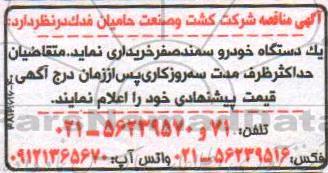 آگهی مناقصه شرکت کشت وصنعت حامیان فدك درنظردارد:
يك دستگاه خودرو سمندصفرخریداری نماید.متقاضیان
حداکثرظرف مدت سه‌روزکاری‌پس‌اززمان درج آگهی،
قیمت پیشنهادی خود را اعلام نمایند.
تلفن: ۷۱ و ۵۶۲۳۹۵۷۰ – ۰۲۱
فکس: ۵۶۲۳۹۵۱۶–۰۲۱ واتس آپ: ۰۹۱۲۱۳۶۵۶۷۰